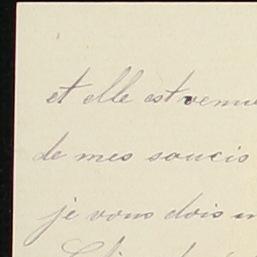 et elle est venue
de mes soucis
je vous dois